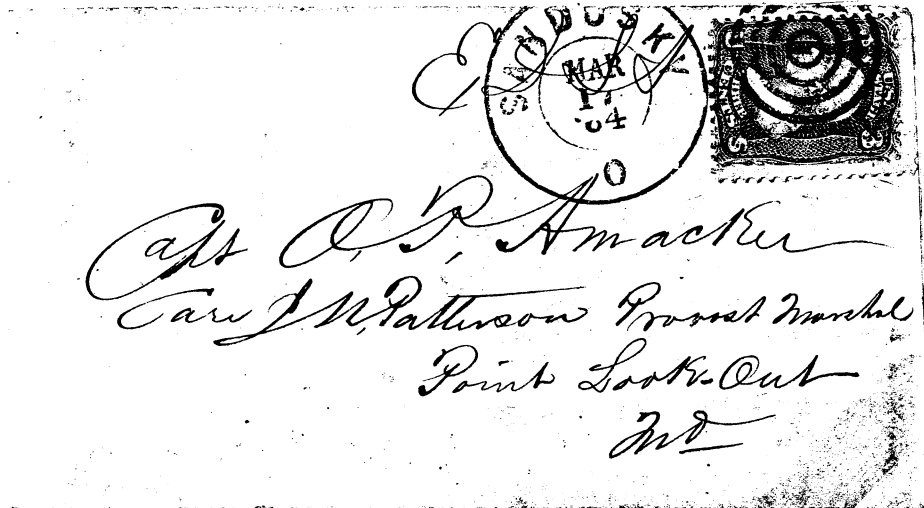 SANDUSKY O
MAR
17
'64
Capt O. P. Amacker
Care J N. Patterson Provost Marshal
Point Look-Out
Md